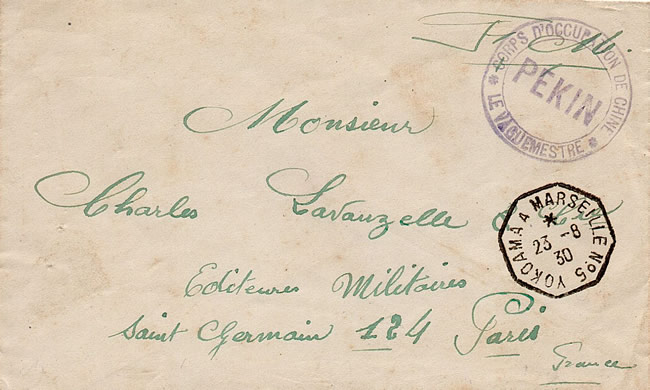 F. M.
* CORPS D'OCCUPATION DE CHINE *
PÉKIN
LE VAGUEMESTRE
Monsieur
Charles Lavauzelle & Cie
YOKOAMA A MARSEILLE No5
*
23 -8
30
Editeurs Militaires
Saint Germain 124 Paris
France